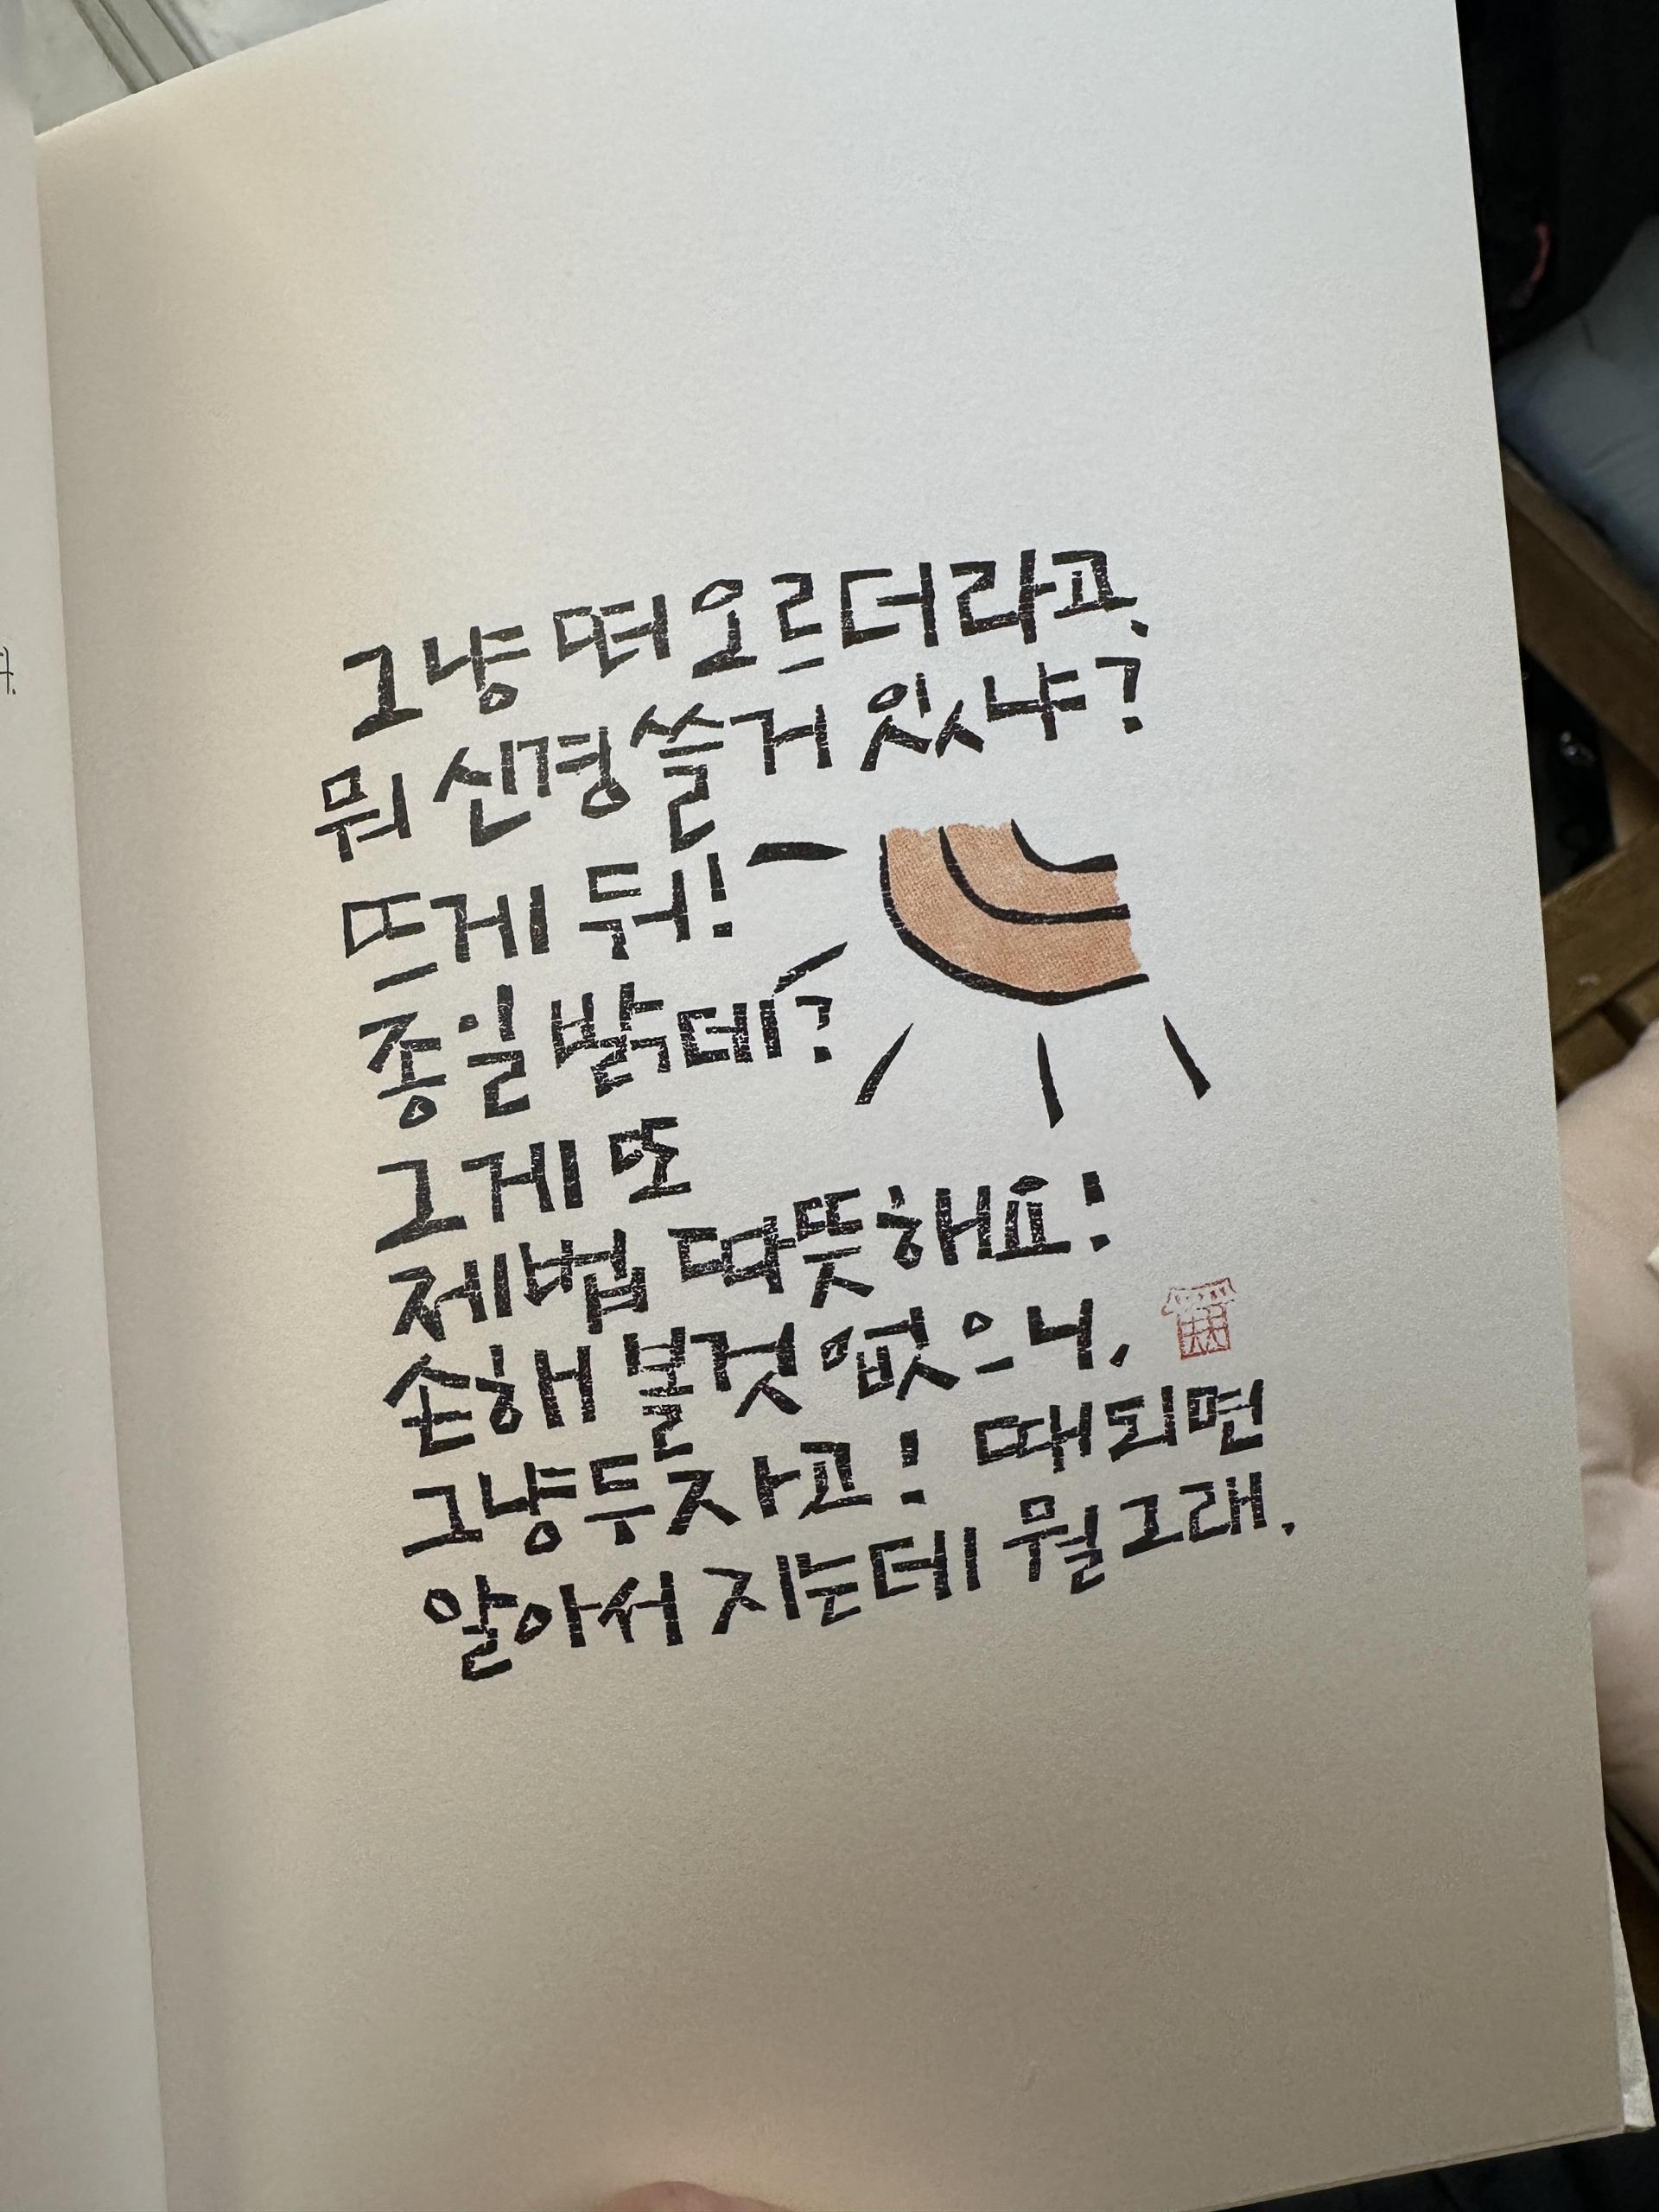 그냥 떠오르더라고.
뭐 신경 쓸거 있냐?
뜨게 둬!
종일 밝데?
그게 또
제법 따뜻해요!
손해 볼것 없으니.
그냥 두자고! 때 되면
알아서 지는데 뭘 그래.